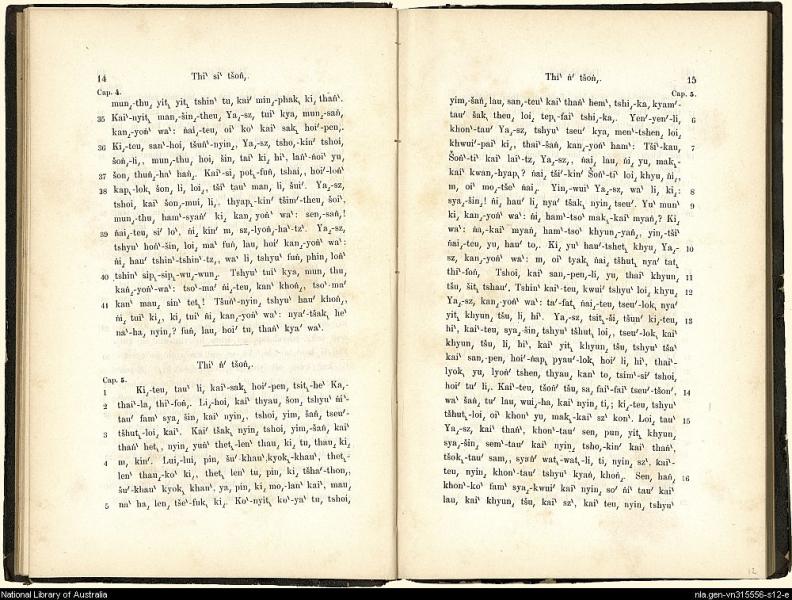 14
Thiʽ siʽ tšoń̩.
Cap. 4.
mun̗-thu̗ yit̩ yit̩ tshinʽ tu, kaiʹ min̗-phak̩ ki̗ thańʽ.
35 Kaiʽ-nyit̩ man̗-šin̗-theu, Ya̗-sz, tuiʽ kya, mun̗-sań,
kan̗-yońʽ waʽ: ńai̗-teu, oiʽ koʽ kaiʽ sak̩ hoiʹ-pen̗.
36 Ki̗-teu, san-hoi, tšuńʽ-nyin̗, Ya̗-sz, tsho̗-kinʹ tshoi,
šoń̗-li̗, mun̗-thu̗ hoi, šin, taiʽ ki̗ hiʽ, lańʽ-ńoiʽ yu,
37 šoń, thuń̗-haʽ hań̗. Kaiʽ-si̗ pot̩-fuń, tshai̗, hoiʹ-lońʽ
38 kap̩-lok, šon, li, loi̗, tšiʽ tauʽ man, li, šuiʹ. Ya̗-sz,
tshoi, kaiʽ šon̗-mui, li̗. thyap̩-kinʹ tšimʹ-theu, šoiʽ,
mun̗-thu, ham̗ʽ-syańʹ ki̗ kan̗ yońʽ waʽ: sen̗-sań̗!
39 ńai̗-teu, siʹ loʽ, ńi̗ kinʹ m, sz̗-lyoń̗-haʽ-tzʽ. Ya̗-sz,
tshyuʽ hońʽ-šin, loi̗ maʽ fuń, lau, hoiʹ kan̗-yońʽ waʽ:
ńi̗ hauʹ tshinʽ-tshinʽ-tz̗, waʽ li, tshyuʽ fuń, phin, lońʽ
40 tshinʽ sip̩-sip̩-wu̗-wun̗. Tshyuʽ tuiʽ kya, mun, thu,
kań̗-yońʽ-waʽ: tsoʽ-maʽ ńi̗-teu, kanʽ khoń̗, tsoʽ-maʽ
41 kanʽ mau, sinʽ tet̩! Tšuńʽ-nyin̗ tshyuʽ hauʹ khoń̗,
ńi, tuiʽ ki̗, ki, tuiʽ ńi, kan̗-yońʽ waʽ: nyaʹ-tšak̩ heʽ
naʽ-ha, nyin̗? fuń, lau, hoiʹ tu, thańʽ kyaʹ waʽ.
Thiʽ ńʹ tšoń̩.
Cap. 5.
1 Ki̗-teu, tauʽ li, kaiʽ-sak̩ hoiʹ-pen, tsit̩-heʽ Ka̗-
2 thaiʽ-la, thiʽ-foń̗. Li̗-hoi, kaiʽ thyau, šon, tshyuʽ ńiʽ-
tauʹ famʽ sya, šin, kaiʽ nyin̗. tshoi, yim, šań, tseuʹ-
3 tšhut̩-loi, kaiʽ. Kaiʹ tšak, nyin, tshoi, yim̗-šań, kaiʽ
thańʽ het̩, nyin, yuńʽ thet̩-len̗ʽ thau, ki, tu, thau, ki̗
4 m, kinʹ. Lui̗-lui, pin, šuʹ-khauʽ kyok̩-khauʽ, thet̩-
lenʽ thau̗-koʽ ki̗, thet̩ lenʽ tu, pin, ki, tšhaʹ-thon̗,
šuʹ-khauʽ kyok, khauʽ. ya, pin, ki, mo̗-lanʽ kaiʽ, mau,
5 naʽ ha, len, tšeʽ-fuk̩ ki̗. Koʽ-nyit̩ koʽ-yaʽ tu, tshoi,
Thiʽ ńʹ tšoń̩.
15
Cap. 5.
yim̗-šań, lau, san̗-teuʽ kaiʽ thańʽ hemʽ, tshi̗-ka, kyamʹ-
tauʹ šak, theu, loi, tep̩-faiʽ tshi̗-ka̗. Yenʹ-yenʹ-li, 6
khonʽ-tauʹ Ya̗-sz, tshyuʽ tseuʹ kya, men̗ʽ-tshen, loi,
khwuiʹ-paiʽ ki̗, thaiʽ-šań, kan̗-yońʽ ham̗ʽ: Tšiʽ-kau, 7
Šońʽ-tiʽ kaiʽ lai̗ʽ-tz, Ya̗-sz̗, ńai, lau, ńi, yu, mak̩-
kaiʽ kwan̗-hyap̩? ńai, tšiʹ-kinʹ Šońʽ-tiʽ loi, khyu, ńi̗,
m, oiʽ mo̗-tšeʽ ńai̗. Yin̗-wuiʽ Ya̗-sz, waʽ li, ki̗: 8
sya̗-šin̗! ńi, hauʹ li, nyaʹ tšak, nyin, tseuʹ. Yuʽ munʽ 9
ki, kan̗-yońʽ waʽ: ńi, ham̗ʽ-tsoʽ mak̩-kaiʽ myań? Ki,
waʽ: ńa̗-kaiʽ myań, ham̗ʽ-tsoʽ khyun̗-yań̗, yin̗-tšiʽ
ńai̗-teu, yu, hauʹ to̗. Ki, yuʽ hauʹ-tshet̩ khyu, Ya̗- 10
sz, kan̗-yońʽ waʽ: m, oiʽ tyak, ńai, tšhut̩ nyaʹ tat̩
thiʽ-foń̗ Tshoi, kaiʽ san̗-pen̗-li, yu, thaiʽ khyun, 11
tšu, šit̩ tshauʹ. Tshinʽ kaiʽ-teu, kwuiʹ tshyuʽ loi, khyu, 12
Ya̗-sz, kan̗-yońʽ waʽ: taʹ-fat̩ ńai̗-teu, tseuʹ-lok, nyaʹ
yit, khyun, tšu, li, hiʽ. Ya̗-sz, tsit̩-ši, tšunʹ ki̗-teu, 13
hiʽ, kaiʽ-teu, sya̗-šin, tshyuʽ tšhut̩ loi̗, tseuʹ-lok, kaiʽ
khyun, tšu, li, hiʽ, kaiʽ yit, khyun, tšu, tshyuʽ tšaʽ
kaiʽ san̗-pen, hoiʹ-ńap, pyauʹ-lok, hoiʹ li, hiʽ, thaiʽ-
lyok, yu, lyońʹ tshen, thyau, kanʽ to, tsimʽ-siʹ tshoi,
hoiʹ tuʹ li̗. Kaiʽ-teu, tšońʹ tšu, sa, faiʽ-faiʽ tseuʹ-tšonʹ, 14
waʽ šań, tuʹ lau, wui̗-ha, kaiʽ nyin, ti̗; ki̗-teu, tshyuʽ
tšhut̩-loi, oiʽ khonʹ yu, mak̩-kaiʽ szʽ konʽ. Loi, tauʽ 15
Ya̗-sz, kaiʽ thańʽ, khonʽ-tauʹ sen, pun, yit, khyun,
sya̗-šin, semʽ-tauʹ kaiʽ nyin, tsho̗-kinʹ kaiʽ thańʽ,
tšok̩-tauʹ sam̗, syańʽ wat̩-wat̩-li, ti, nyin, szʽ, kaiʽ-
teu, nyin, khonʽ-tauʹ tshyuʽ kyań, khoń̗. Sen, hań, 16
khonʽ-koʽ famʽ sya̗-kwuiʹ kaiʽ nyin, soʹ ńiʽ tauʹ kaiʽ
lau, kaiʽ khyun, tšu, kaiʽ szʽ, kaiʽ teu, nyin, tshyuʽ
12
National Library of Australia
nla.gen-vn315556-s12-e